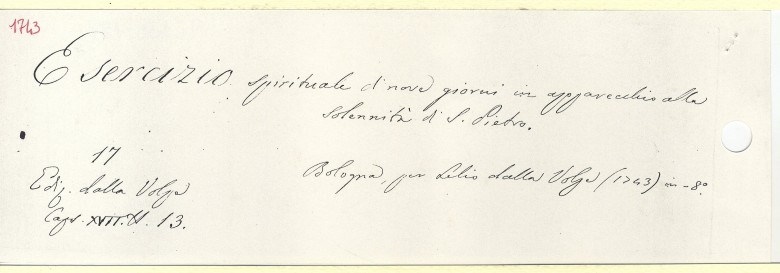 1743
Esercizio spirituale di nove giorni in apparecchio alla
solennità di S. Pietro.
17
Ediz. dalla Volpe
Bologna, per Lelio dalla Volpe (1743) in-8º
Caps. XVII. N. 13.